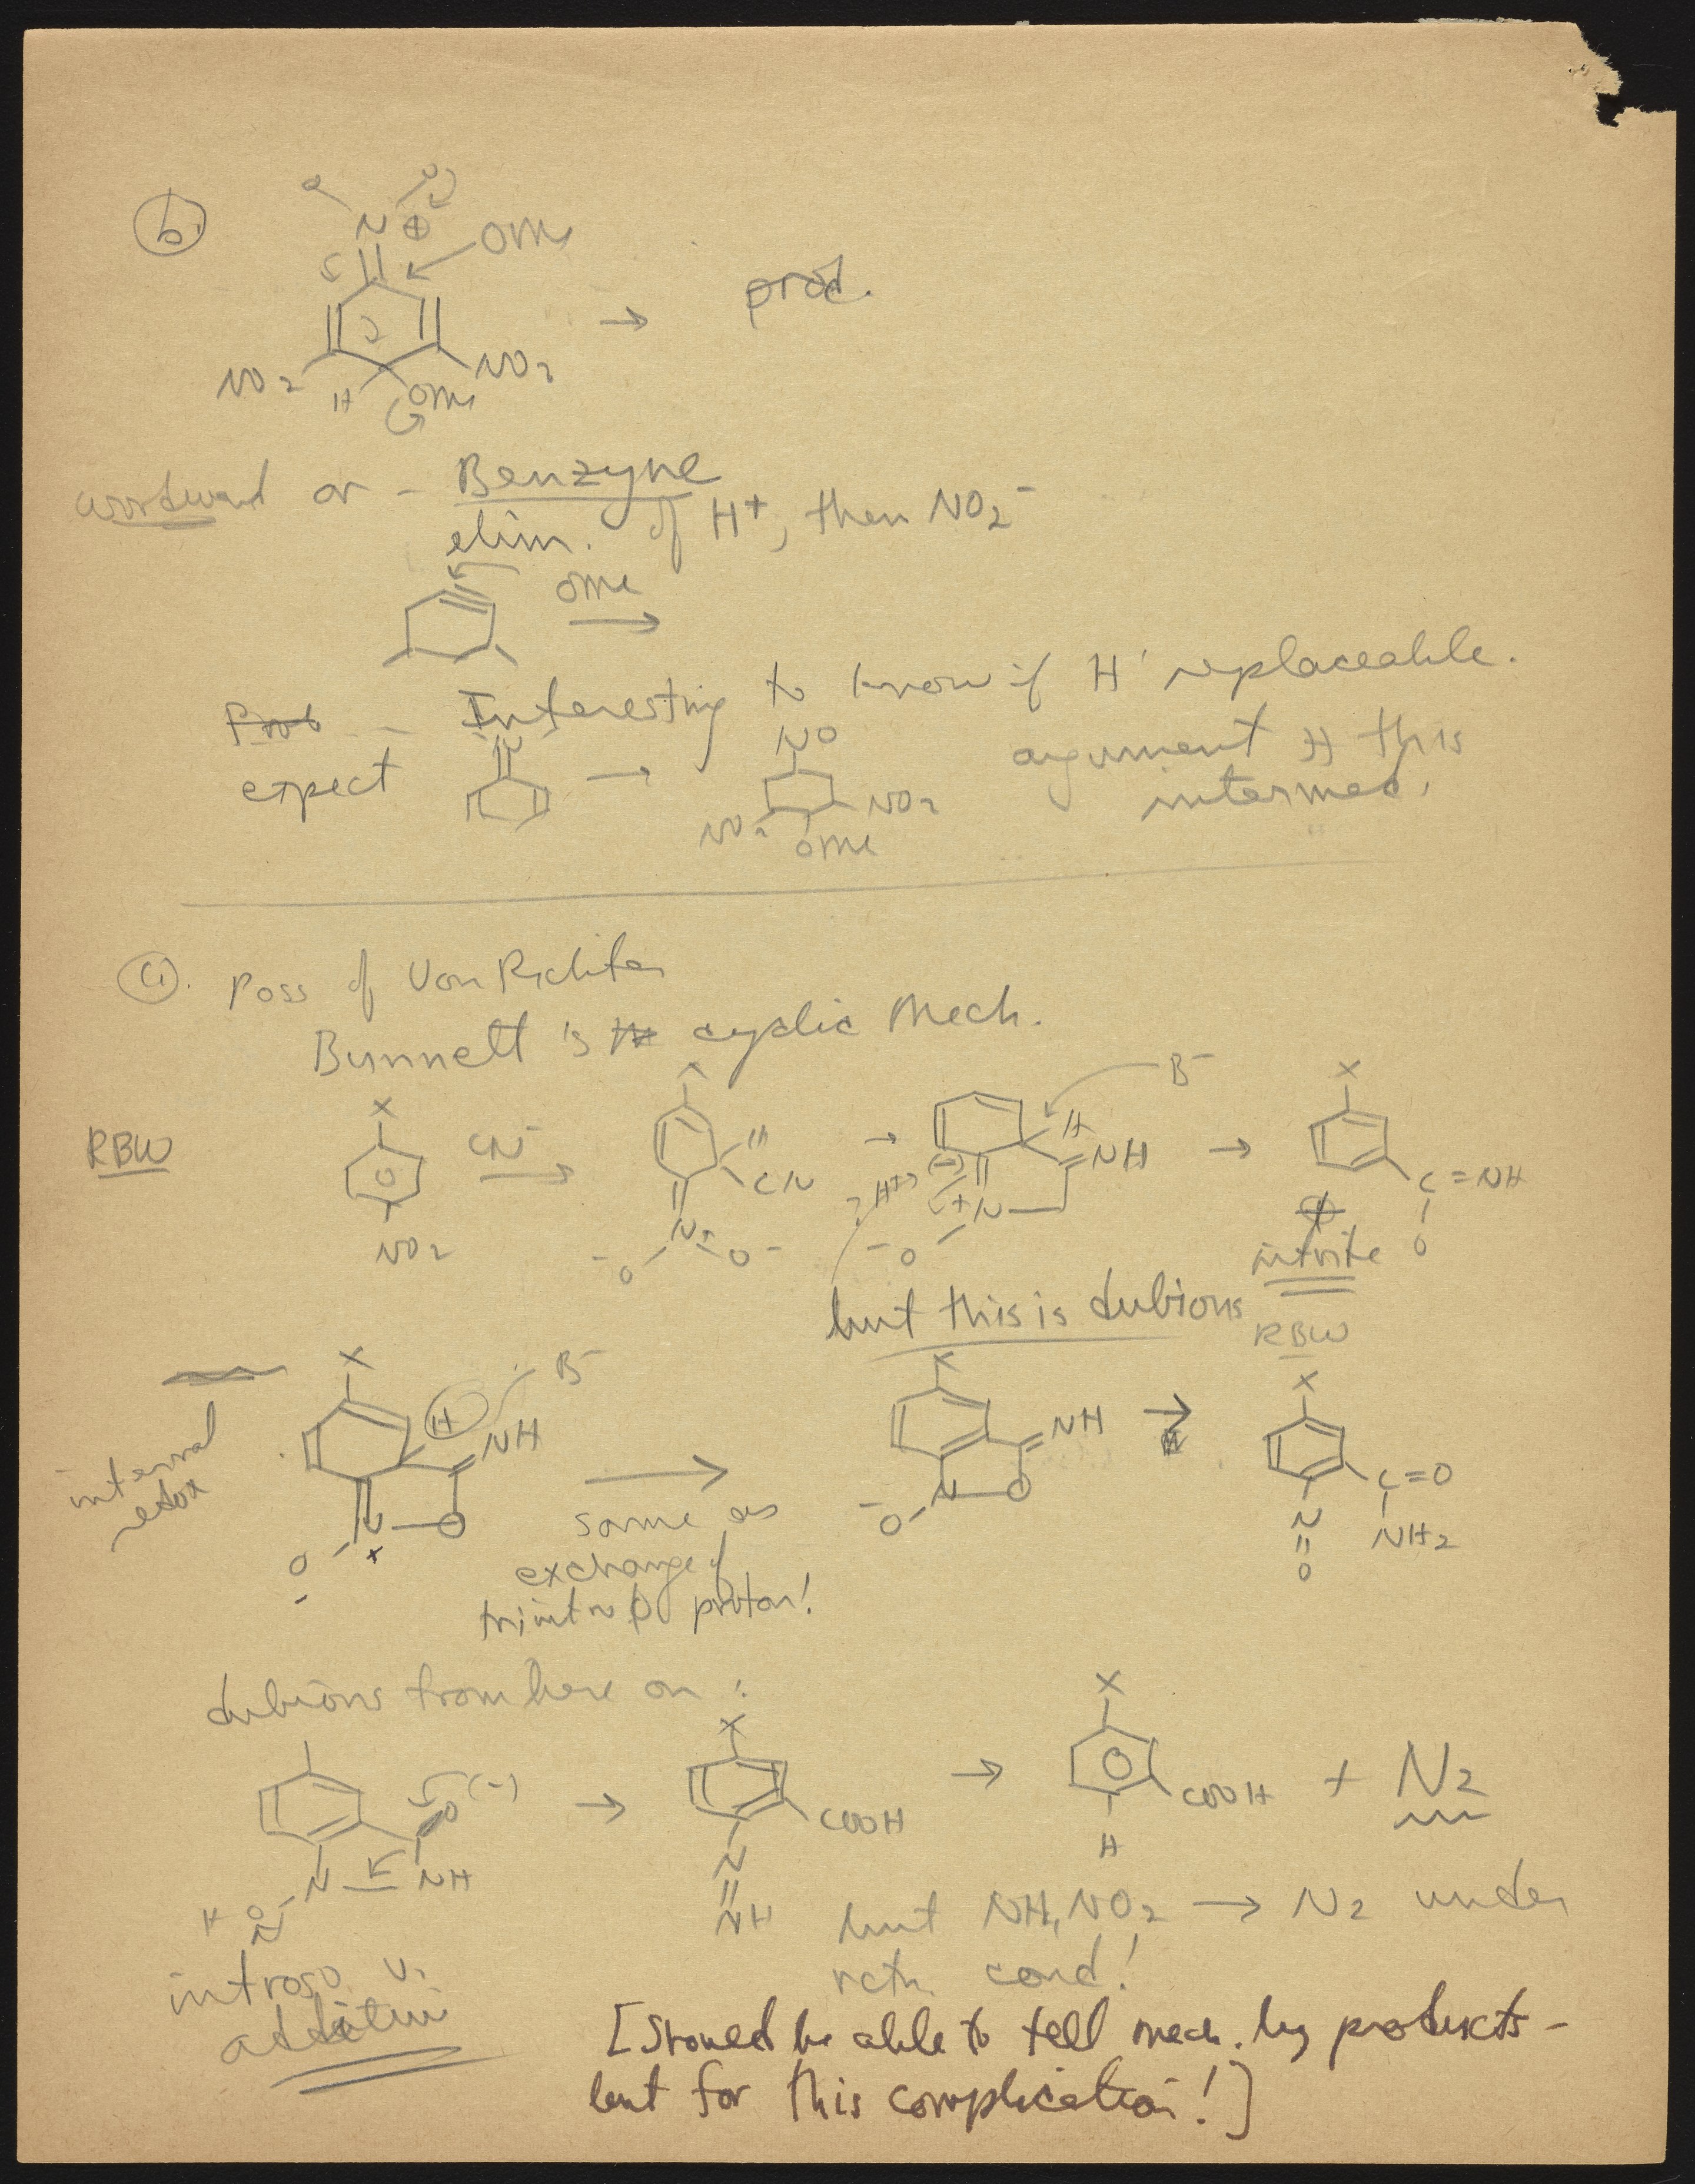 b.
O O
N ⊕ OMe
→ prod.
NO2 H OMe NO2
Woodward or - Benzyne
elim. of H+, then NO2-
OMe
→
Prob - Interesting to know if H replaceable.
expect N → NO NO2 NO2 OMe argument this
intermed.
Poss of Von Richter
Bunnett is cyclic Mech.
RBW X NO2 CN- → X H CN N+ -O O- → H NH B- +N -O → X C=NH O
? H+ (-)
nitrite
but this is dubious
RBW
internal
redox
X H NH B- N + O O - → X NH N O -O → X C=O NH2 N O
same as
exchange of
trinitro proton!
dubious from here on :
O (-) N NH H O → X COOH N NH → X COOH H + N2
but NH2NO2 → N2 under
rctn cond!
nitroso
addition
[Should be able to tell mech. by products -
but for this complication!]